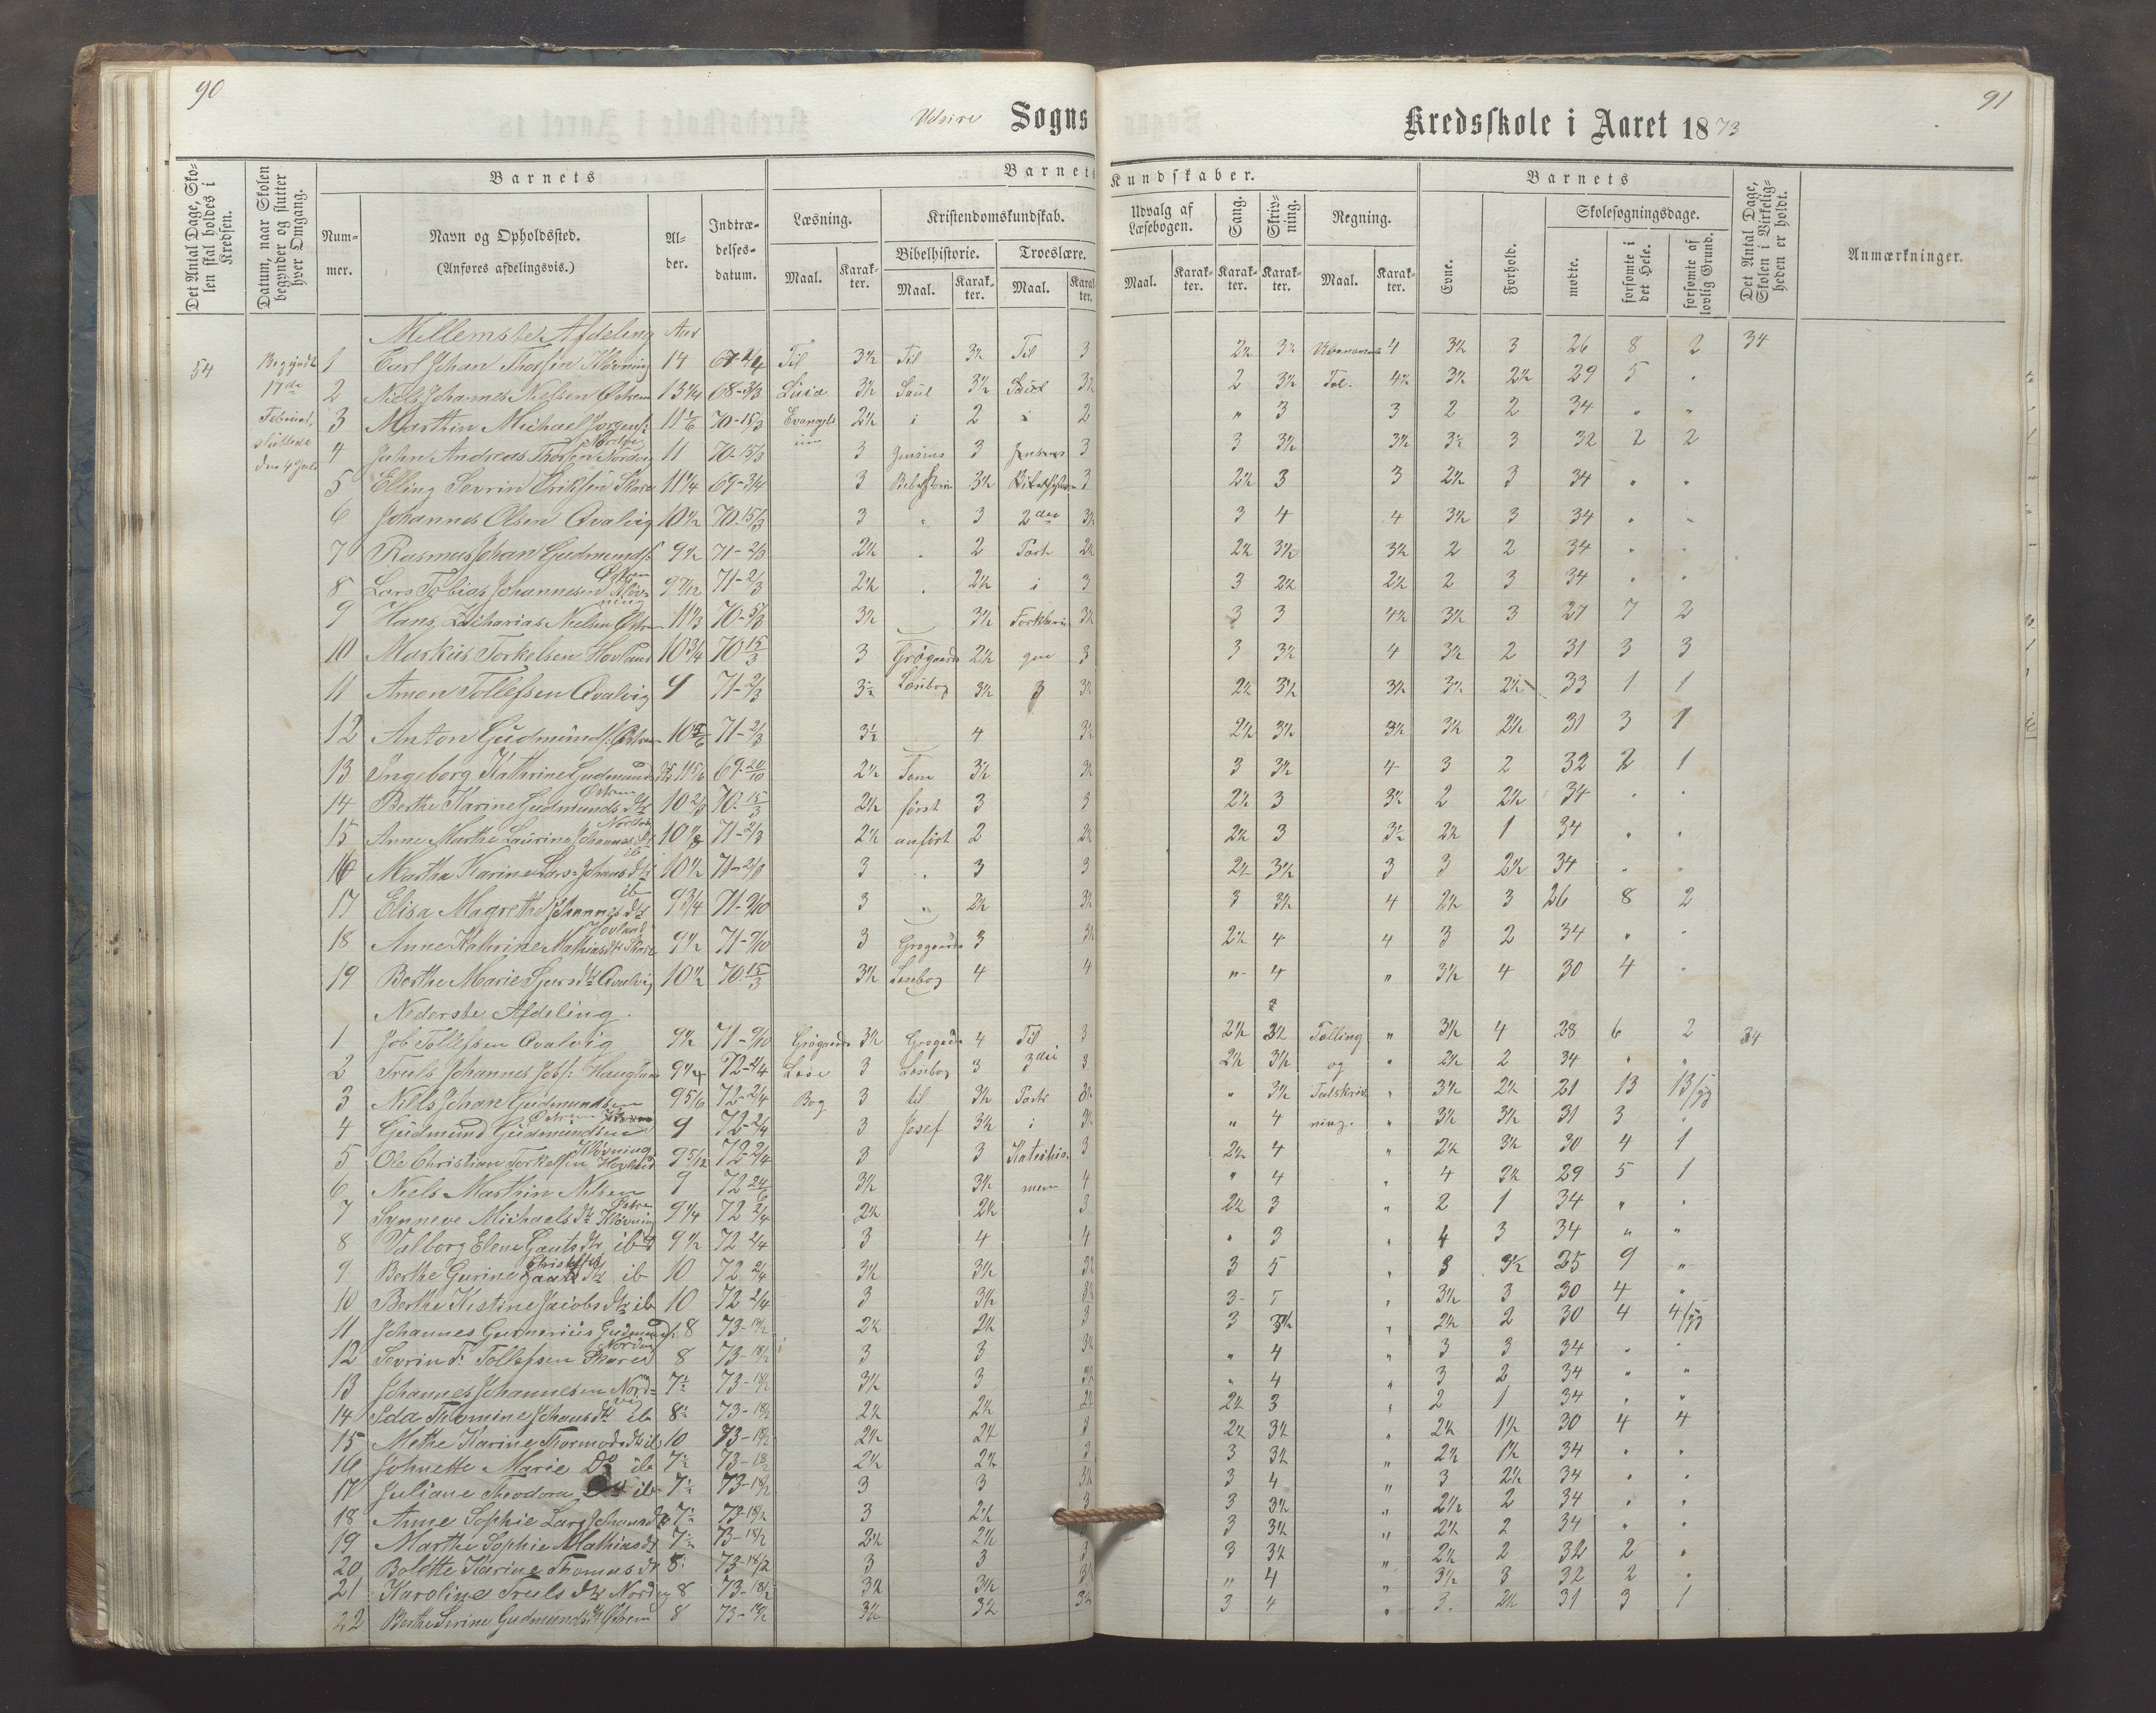 90
Udsire Sogns Kredsskole i Aaret 1873
91
Det Antal Dage, Skolen skal holdes i Kredsen.
Datum, naar Skolen begynder og slutter hver Omgang.
Barnets
Nummer.
Navn og Opholdssted.
(Anføres afdelingsvis.)
Alder.
Indtrædelsesdatum.
Barnets Kundskaber.
Læsning.
Maal. Karakter.
Kristendomskundskab.
Bibelhistorie.
Maal. Karakter.
Troeslære.
Maal. Karakter.
Udvalg af Læsebogen.
Maal. Karakter.
Sang.
Karakter.
Skrivning.
Karakter.
Regning.
Maal. Karakter.
Barnets
Evne.
Forhold.
Skolesøgningsdage.
mødte.
forsømte i det Hele.
forsømte af lovlig Grund.
Det Antal Dage, Skolen i Virkeligheden er holdt.
Anmærkninger.
Mellemste Afdeling Aar
54 Begyndte 1 Carl Johan Thorsen Kløvning 14 67-2/4 Til 3½ Til 3½ Til 3 2½ 3½ 4 3½ 3 26 8 2 34
17de 2 Niels Johannes Nielsen Østrem 13¼ 68-3/3 3½ Saul 3½ Saul 3½ 2 3½ Tal. 4½ 3½ 2½ 29 5 "
Februar, 3 Marthin Michael Jørgens: 11 1/6 70-15/3 Evangelium 2½ i 2 i 2 " 3 3 2 2 34 " "
sluttede den 4 Juli 4 John Andreas Thorsen Nordvig 11 70-15/3 3 3 3 3 3½ 3½ 3½ 3 32 2 2
5 Elling Sevrin Eriksen Skare 11¼ 69-3/4 3 3½ 3 2½ 3 3 2½ 3 34 " "
6 Johannes Olsen Qvalvig 10½ 70-15/3 3 " 3 2den 3½ 3 4 4 3½ 3 34 " "
7 Rasmus Johan Gudmunds: Østrem 9½ 71-2/3 2½ " 2 Part 2½ 2½ 3½ 3½ 2 2 34 " "
8 Lars Tobias Johannesen Kløvning 9 7/12 71-2/3 2½ " 2½ i 3 3 2½ 2½ 2 3 34 " "
9 Hans Zacharias Nielsen Østrem 11⅓ 70-5/3 3½ 3½ Forklarin 3½ 3 3 4½ 3½ 3 27 7 2
10 Markus Torkelsen Hovland 10¾ 70 15/3 3 Grøgaards 2½ gen 3 3 3½ 4 3½ 2 31 3 3
11 Amon Tollefsen Qvalvig 9 71-2/3 3½ Læsebog 3½ 3½ 2½ 3½ 3½ 3½ 2½ 33 1 1
12 Anton Gudmunds: Østrem 10 5/6 71-2/3 3½ 4 3½ 2½ 3½ 3½ 3½ 2½ 31 3 1
13 Ingeborg Kathrine Gudmunds 11 5/6 69-20/10 2½ Som 3½ 3½ 3 3½ 4 3 2 32 2 1
14 Berthe Karine Gudmunds dtr Østrem 10⅔ 70-15/3 2½ først 3 3 2½ 3 3½ 2 2½ 34 " "
15 Anne Marthe Laurine Johannes dtr Nordvig 71-2/3 2½ anført 2 2½ 2½ 3 3½ 2½ 1 34 " "
16 Martha Karine Lars Johans dtr ib 10½ 71-2/3 3 " 3 3 2½ 3½ 3 3 2½ 34 " "
17 Elisa Magrethe Johannes dtr ib 9¾ 71-9/10 3 " 2½ 3½ 3 3½ 4 2½ 3 26 8 2
18 Anne Kathrine Mathias dtr Skare 9½ 71-9/10 3 Grøgaards 3 3½ 2½ 4 4 3 2 34 " "
19 Berthe Marie Sjurs dtr Qvalvig 10½ 70-15/3 3½ Læsebog 4 4 " 4 " 3½ 4 30 4 "
Nederste Afdeling.
1 Job Tollefsen Qvalvig 9½ 71-9/10 Grøgaards 3½ Grøgaards 4 Til 3 2½ 3½ Tælling " 3½ 4 28 6 2 34
2 Truls Johannes Jobs: Haugland 9¼ 72-2/4 Læse 3 Læsebog 3 3die 3 2½ 3½ og " 2½ 2 34 " "
3 Niels Johan Gudmundsen Østrem 9 5/6 72-2/4 Bog 3 til 3½ Part 3½ " 3½ Talskriv " 3½ 2½ 21 13 13/
4 Gudmund Gudmundsen Kløvning 9 72-2/4 3 Josef 3½ i 3½ " 4 ning. " 3½ 3½ 31 3 "
5 Ole Christian Torkelsen Hovland 9 5/12 72-2/4 3 3 Katekis- 3 2½ 4 " 2½ 3½ 30 4 1
6 Niels Marthin Nilsen Østrem 9 72 24/6 3½ 3½ men 4 " 4 " 4 3½ 29 5 1
7 Synneve Michaels dtr Kløvning 9¼ 72 2/4 2½ 2½ 3 2½ 3 " 2 1 34 " "
8 Valborg Elene Gauts dtr ibd 9½ 72 2/4 3 4 4 " 3 " 4 3 34 " "
9 Berthe Gurine dtr ib 10 72 2/4 3½ 3½ 3½ 3 5 " 3 3½ 25 9 "
10 Berthe Kistine Jacobs dtr ib 10 72 2/4 3 3½ 3½ 3 5 " 3½ 3 30 4 "
11 Johannes Gudmunds: 8 73-18/2 2½ 2½ 3 3 3½ " 2½ 2 30 4 4/
12 Sevrin T: Tollefsen Skare 8 73-18/2 3 3 3½ " 4 " 3 3 34 " "
13 Johannes Johannesen Nordvig 7½ 73-18/2 3½ 3 3½ " 4 " 3 2 34 " "
14 Ida Thomine Johans dtr ib 8½ 73-18/2 2½ 2½ 2½ 2½ 3 " 2 1 34 " "
15 Methe Karine Thormods dtr ib 10 73-18/2 2½ 2½ 3 2½ 3½ " 2½ 1½ 30 4 4
16 Johnette Marie Do ib 7½ 73-18/2 2½ 2½ 3 3 3½ " 2½ 1½ 34 " "
17 Juliane Theodora ib 7½ 73-18/2 3 3 3½ 3 4 " 3 2½ 34 " "
18 Anne Sophie Lars Johans dtr 7½ 73-18/2 3 2½ 3 3 3½ " 2½ 2 34 " "
19 Marthe Sophie Mathias dtr 7½ 73-18/2 2½ 2½ 3 3½ " 2½ 2 34 " "
20 Bolette Karine Thomas dtr 8 73-18/2 3 3 3 3 3½ " 2½ 2 32 2 "
21 Karoline Truls dtr Nordvig 8 73-18/2 3½ 3½ 3½ " 4 " 3½ 3 32 2 "
22 Berthe Serine Gudmunds dtr Østrem 8 73-18/2 3½ 3½ 3½ 3 4 " 3. 2½ 31 3 1